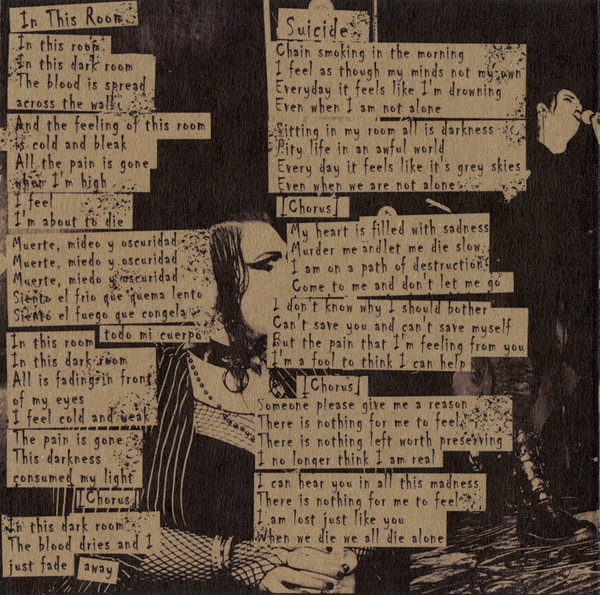 In This Room
In this room
In this dark room
The blood is spread
across the wall
And the feeling of this room
is cold and bleak
All the pain is gone
when I'm high
I feel
I'm about to die
Muerte, mideo y oscuridad
Muerte, miedo y oscuridad
Muerte, miedo y oscuridad
Siento el frio que quema lento
Siento el fuego que congela
todo mi cuerpo
In this room
In this dark room
All is fading in front
of my eyes
I feel cold and weak
The pain is gone
This darkness
consumed my light
[Chorus]
In this dark room
The blood dries and I
just fade away
Suicide
Chain smoking in the morning
I feel as though my minds not my own
Everyday it feels like I'm drowning
Even when I am not alone
Sitting in my room all is darkness
City life in an awful world
Every day it feels like it's grey skies
Even when we are not alone
[Chorus]
My heart is filled with sadness
Murder me and let me die slow
I am on a path of destruction
Come to me and don't let me go
I don't know why I should bother
Can't save you and can't save myself
But the pain that I'm feeling from you
I'm a fool to think I can help
[Chorus]
Someone please give me a reason
There is nothing for me to feel
There is nothing left worth preserving
I no longer think I am real
I can hear you in all this madness
There is nothing for me to feel
I am lost just like you
When we die we all die alone